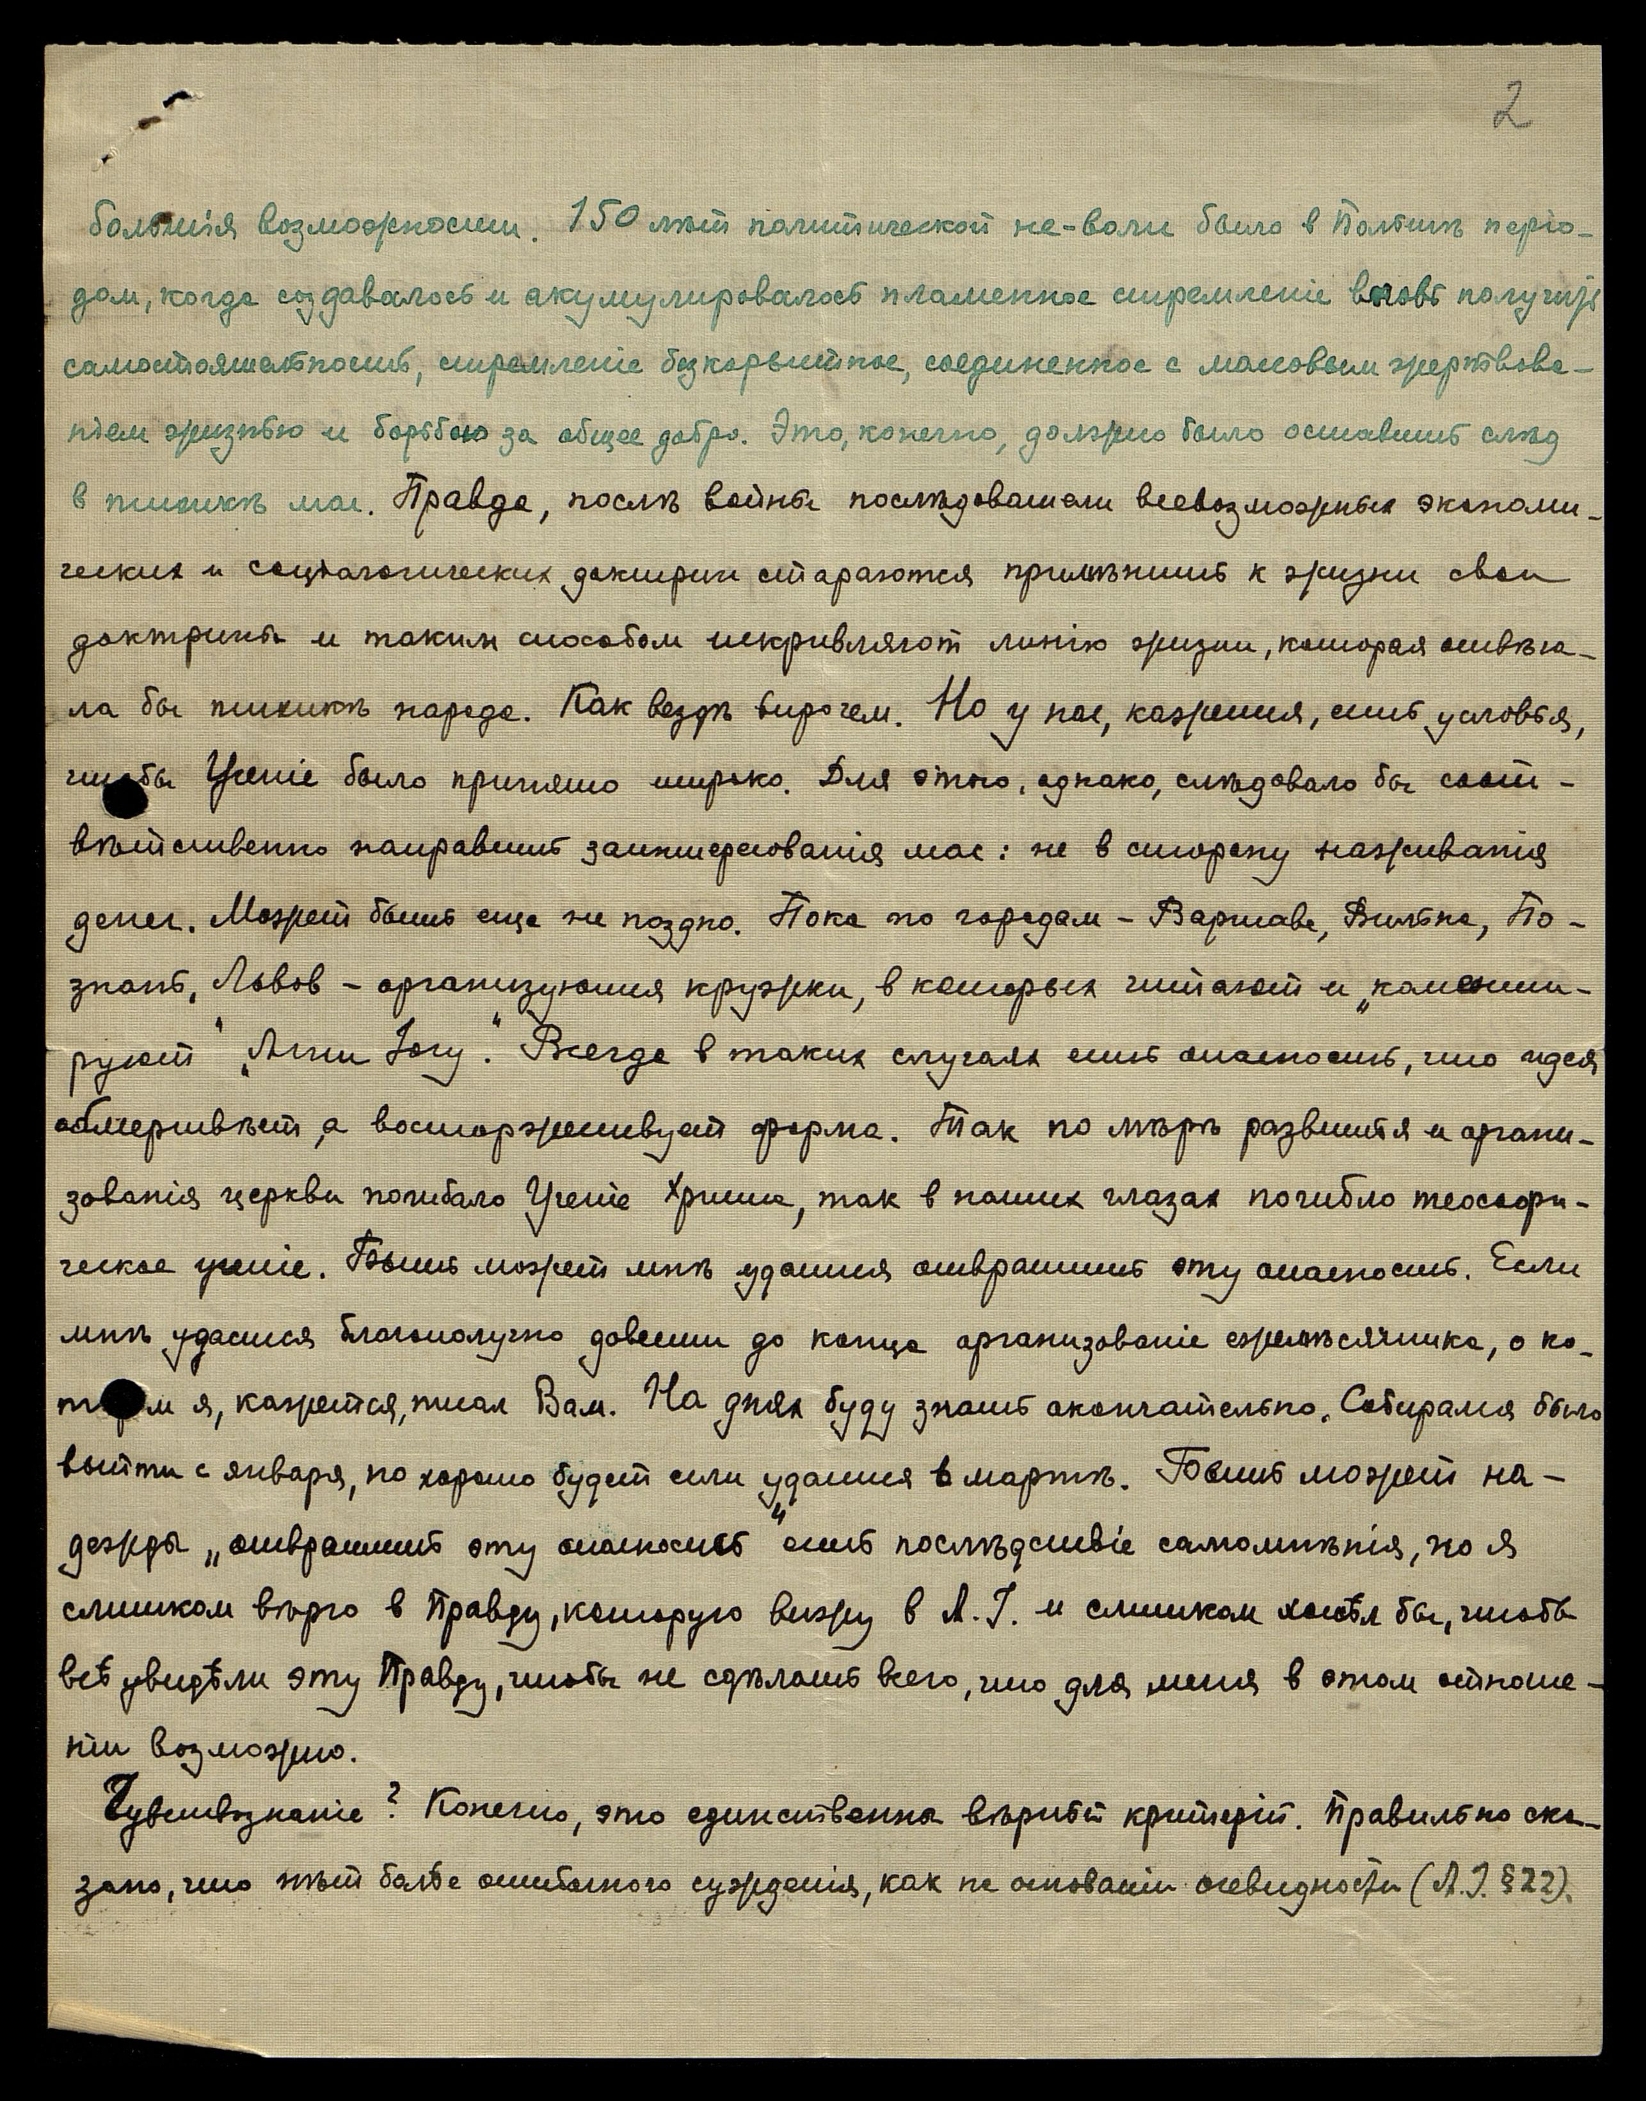 2
большія возможности. 150 лѣт политической не-воли было в Польшѣ періо-
дом, когда создавалось и акумулировалось пламенное стремленіе вновь получить
самостоятельность, стремленіе безкорыстное, соединенное с массовым жертвова-
ніем жизнью и борьбою за общее добро. Это, конечно, должно было оставить слѣд
в психикѣ мас. Правда, послѣ войны послѣдователи всевозможных экономи-
ческих и соціалогических доктрин стараются примѣнить к жизни свои
доктрины и таким способом искривляют линію жизни, которая отвѣча-
ла бы психикѣ народа. Как вездѣ впрочем. Но у нас, кажется, есть условья,
чтобы Ученіе было принято широко. Для этого, однако, слѣдовало бы соот-
вѣтственно направить заинтересованія мас: не в сторону наживанія
денег. Может быть еще не поздно. Пока по городам – Варшава, Вильна, По-
знань, Львов – организуются кружки, в которых читают и „коменти-
руют" „Агни Іогу". Всегда в таких случаях есть опасность, что идея
обмертвѣет, а восторжествует форма. Так по мѣрѣ развитія и органи-
зованія церкви погибало Ученіе Христа, так в наших глазах погибло теософи-
ческое ученіе. Быть может мнѣ удастся отвратить эту опасность. Если
мнѣ удастся благополучно довести до конца организованіе ежемѣсячника, о ко-
тором я, кажется, писал Вам. На днях буду знать окончательно. Собирался было
выйти с января, но хорошо будет если удастся в мартѣ. Быть может на-
дежда „отвратить эту опасность" есть послѣдствіе самомнѣнія, но я
слишком вѣрю в Правду, которую вижу в А.І. и слишком хотѣл бы, чтобы
всѣ увидѣли эту Правду, чтобы не сдѣлать всего, что для меня в этом отноше-
ніи возможно.
Чувствознаніе? Конечно, это единственно вѣрный критерій. Правильно ска-
зано, что нѣт болѣе ошибочного сужденія, как на основаніи очевидности (А.І. §22).